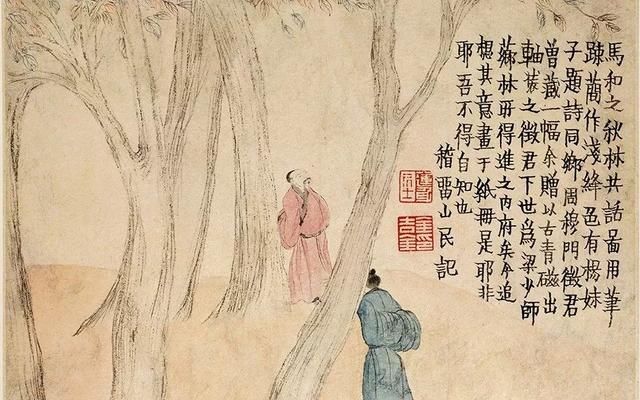 馬和之秋林共話啚用筆
踈蕳作淺絳色有楊妹
子題詩同鄉周穆門徵君
曾藏一幅余贈以古青磁出
軸裝之徵君下世為梁少師
薌林得進之內府矣今追
想其意畫于紙冊是耶非
耶吾不得自知也
稽畱山民記